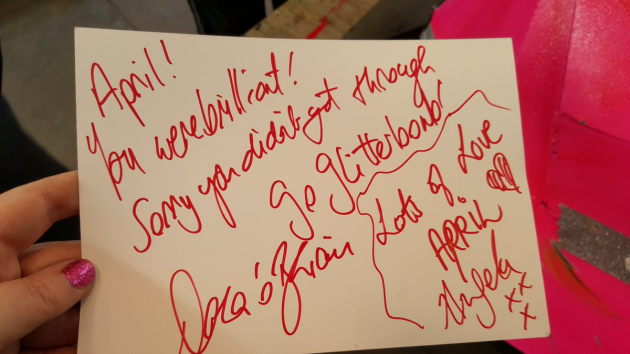 April!
You were brilliant!
Sorry you didn't get through
Go Glitterbomb!
Dara Ó Briain
Lots of Love
APRIL
Angela
xxx